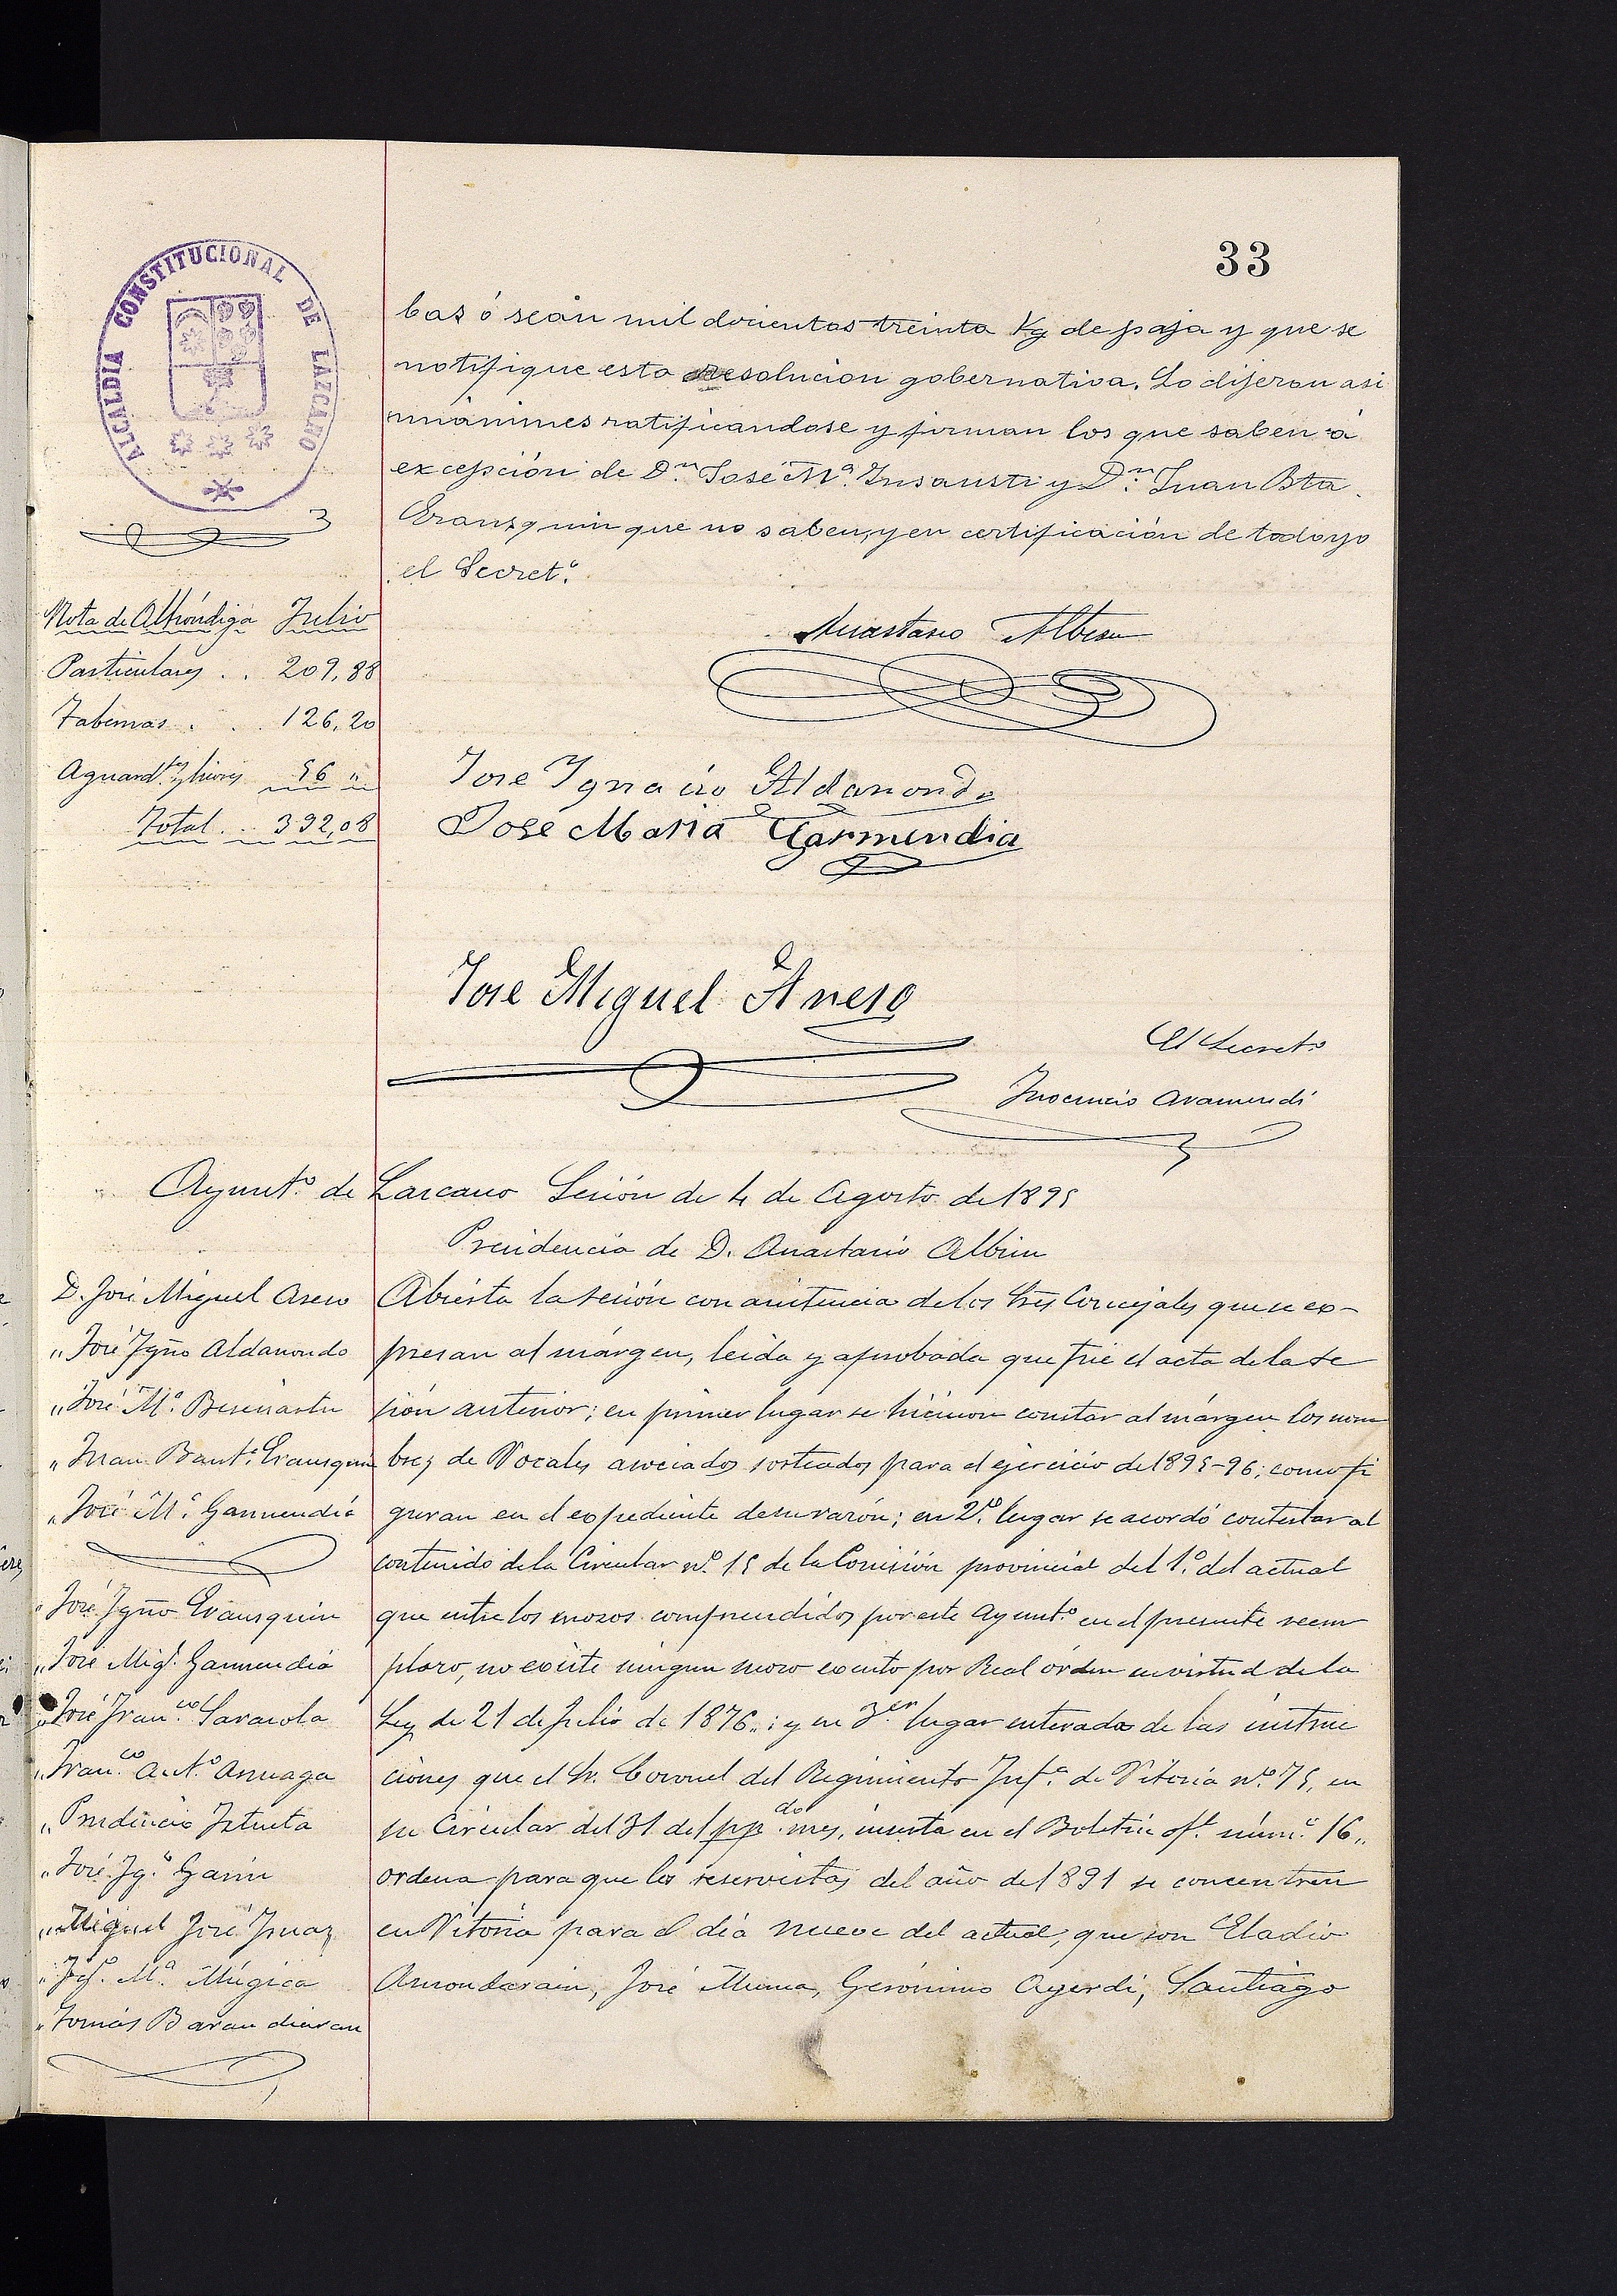 33
ALCALDIA CONSTITUCIONAL DE LAZCANO
bas ó sean mil docientos treinta Kg de paja y que se
notifique esta resolucion gobernativa. Lo dijeron asi
unánimes ratificandose y firman los que saben á
excepción de Dn. José Mª. Insausti y Dn. Juan Bta.
Eransquin que no saben, y en certificación de todo yo
el Secretº.
Nota de Alhóndiga Julio
Particulares . . 209,88
Tabernas . . . 126,20
Aguardtes y licores 56 "
Total . . 392,08
Anastasio Albisu
Jose Ygnacio Aldanondo
José Maria Garmendia
Jose Miguel Aseso
El Secretº
Ynocencio Aramendi
Ayuntº. de Lazcano Sesión de 4 de Agosto de 1895
Presidencia de D. Anastasio Albisu
D. José Miguel Aseso
" José Ygno Aldanondo
" José Mª.
" Juan Bautª. Eransquin
" José Mª. Garmendia
José Ygno Eransquin
" José Migl. Garmendia
" José Franco. Sarasola
" Franco. Antº. Arruaga
" Prudencio Iztueta
" José Ygº. Garin
" Miguel José Ymaz
" Mª. Múgica
" Tomás Barandiaran
Abierta la sesión con asistencia de los Sres Concejales que se ex-
presan al márgen, leida y aprobada que fué el acta de la se
sión anterior; en primer lugar se hicieron constar al márgen los nom
bres de Vocales asociados sorteados para el ejercicio de 1895-96; como fi
guran en el expediente de su razón; en 2º. lugar se acordó contestar al
contenido de la Circular nº. 15 de la Comisión provincial del 1º. del actual
que entre los mozos comprendidos por este Ayuntº. en el presente reem
plazo, no existe ningun mozo exento por Real órden en virtud de la
Ley de 21 de Julio de 1876.; y en 3er lugar enterados de las instruc
ciones que el Sr. Coronel del Regimiento Infª. de Vitoria nº. 75, en
su Circular del 31 del ppdo. mes, inserta en el Boletin ofl. númº. 16.,
ordena para que los reservistas del año de 1891 se concentren
en Vitoria para el dia nueve del actual, que son Eladio
Amondarain, José Munua, Gerónimo Ayerdi, Santiago